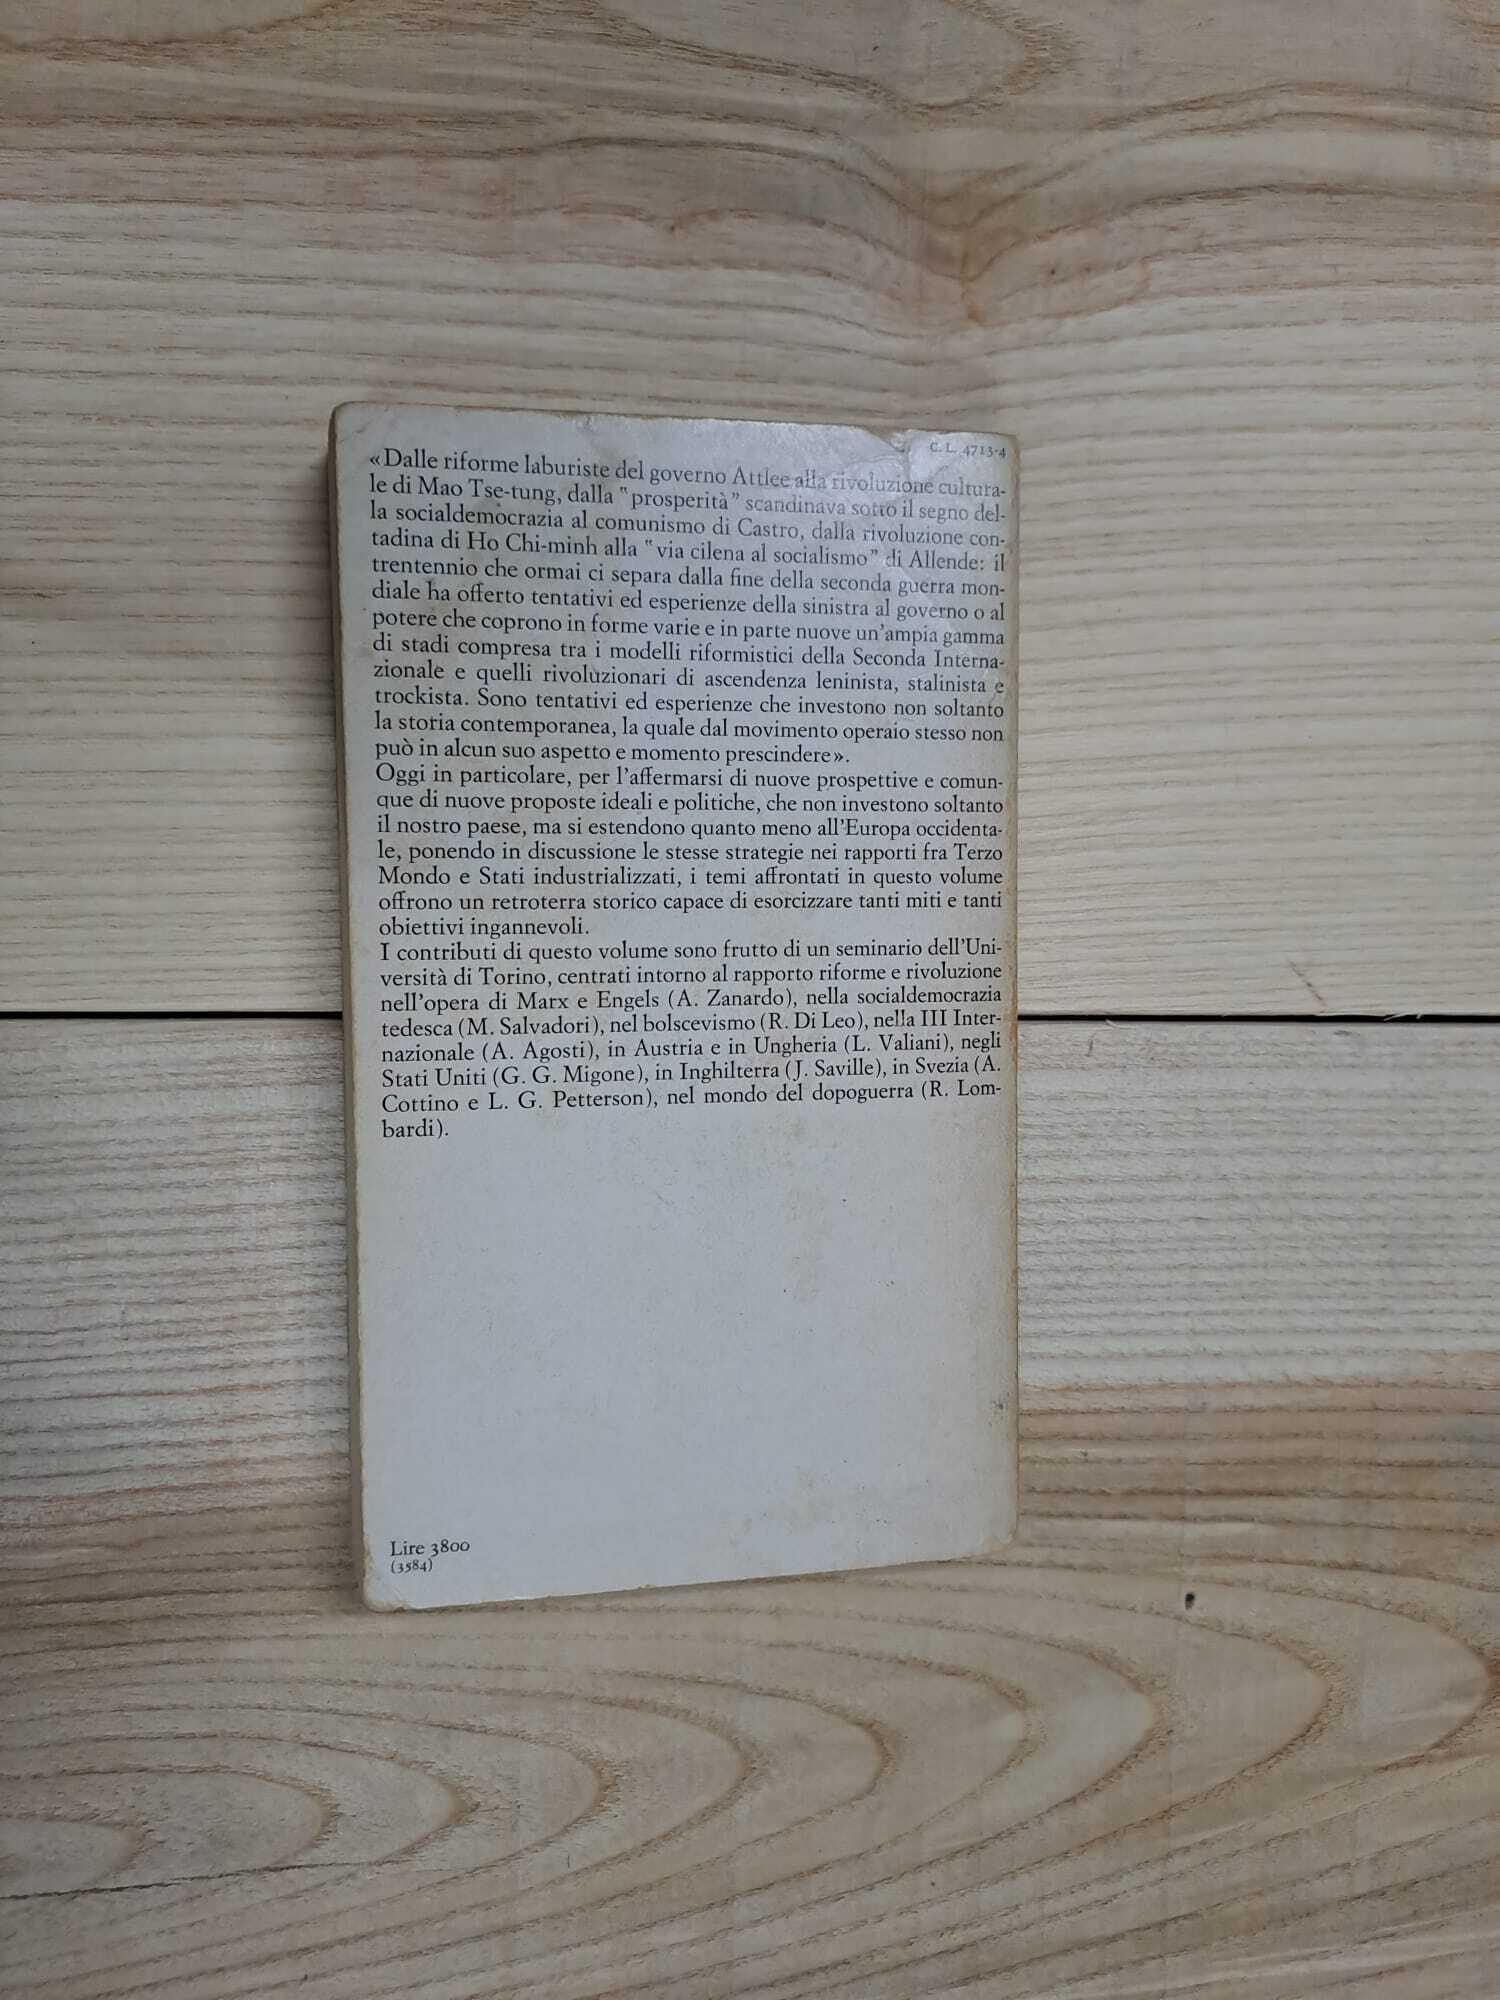 C. L. 4713-4
«Dalle riforme laburiste del governo Attlee alla rivoluzione cultura-
le di Mao Tse-tung, dalla "prosperità" scandinava sotto il segno del-
la socialdemocrazia al comunismo di Castro, dalla rivoluzione con-
tadina di Ho Chi-minh alla "via cilena al socialismo" di Allende: il
trentennio che ormai ci separa dalla fine della seconda guerra mon-
diale ha offerto tentativi ed esperienze della sinistra al governo o al
potere che coprono in forme varie e in parte nuove un'ampia gamma
di stadi compresa tra i modelli riformistici della Seconda Interna-
zionale e quelli rivoluzionari di ascendenza leninista, stalinista e
trockista. Sono tentativi ed esperienze che investono non soltanto
la storia contemporanea, la quale dal movimento operaio stesso non
può in alcun suo aspetto e momento prescindere».
Oggi in particolare, per l'affermarsi di nuove prospettive e comun-
que di nuove proposte ideali e politiche, che non investono soltanto
il nostro paese, ma si estendono quanto meno all'Europa occidenta-
le, ponendo in discussione le stesse strategie nei rapporti fra Terzo
Mondo e Stati industrializzati, i temi affrontati in questo volume
offrono un retroterra storico capace di esorcizzare tanti miti e tanti
obiettivi ingannevoli.
I contributi di questo volume sono frutto di un seminario dell'Uni-
versità di Torino, centrati intorno al rapporto riforme e rivoluzione
nell'opera di Marx e Engels (A. Zanardo), nella socialdemocrazia
tedesca (M. Salvadori), nel bolscevismo (R. Di Leo), nella III Inter-
nazionale (A. Agosti), in Austria e in Ungheria (L. Valiani), negli
Stati Uniti (G. G. Migone), in Inghilterra (J. Saville), in Svezia (A.
Cottino e L. G. Petterson), nel mondo del dopoguerra (R. Lom-
bardi).
Lire 3800
(3584)